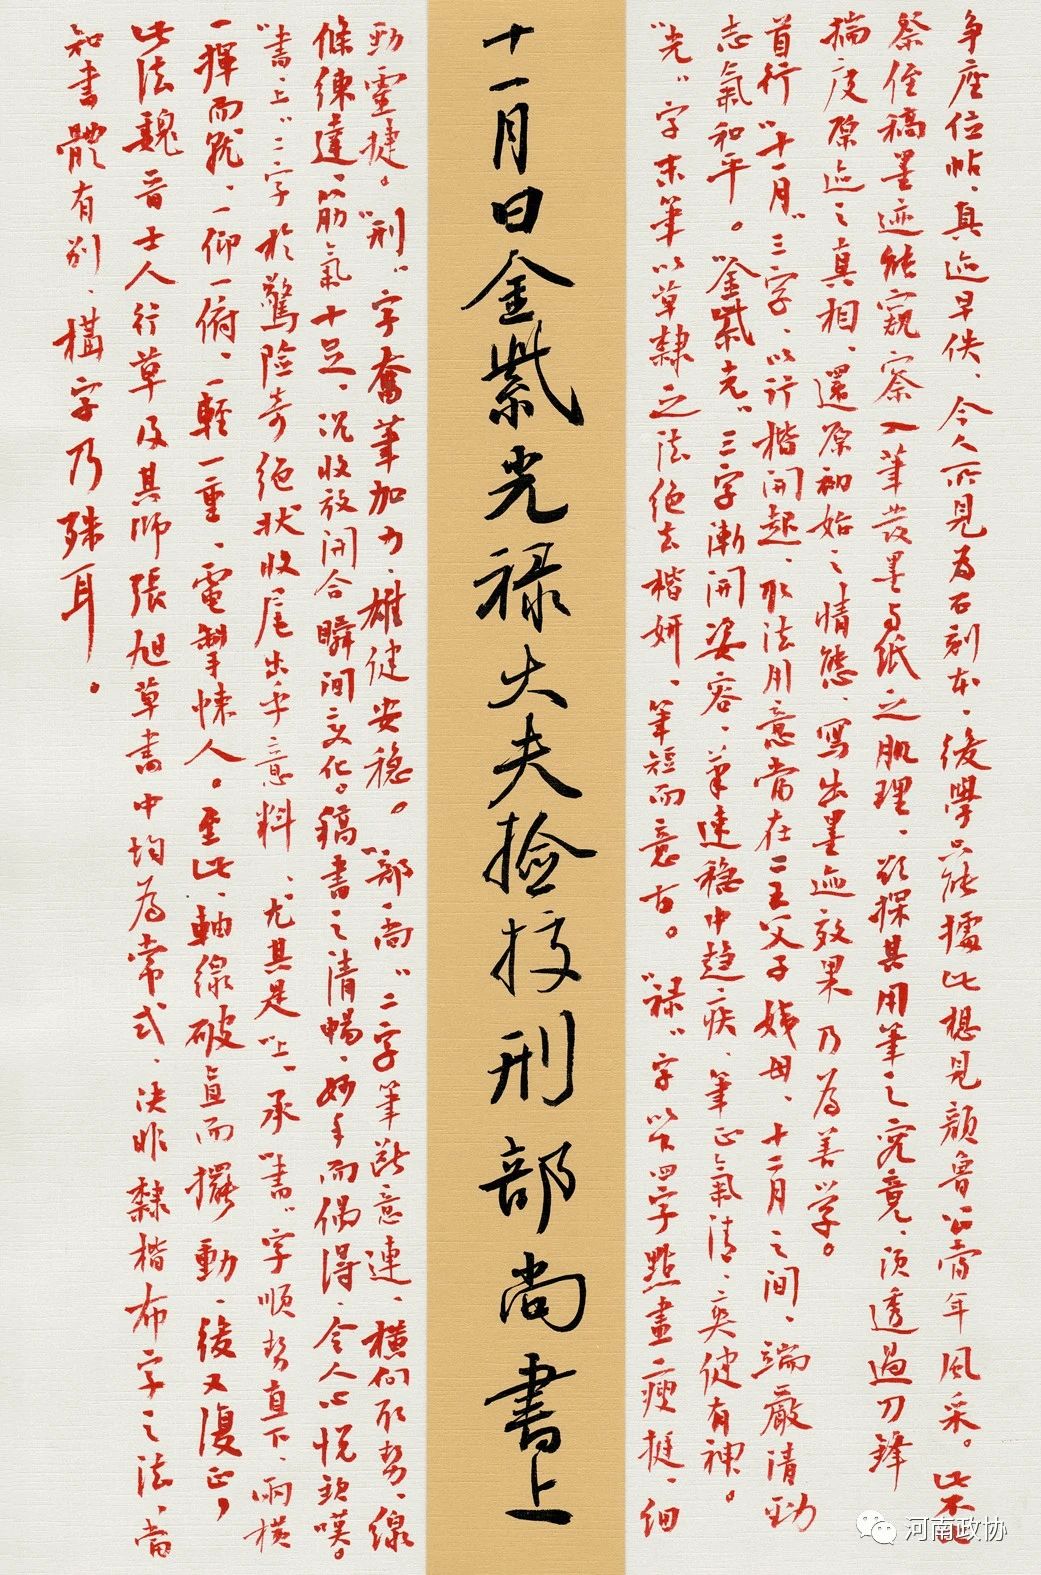 争座位帖、真迹早佚、今人所见为石刻本、後學只能據此想見顔魯公當年風采。此不
祭侄稿墨迹能窺察入筆發墨与紙之肌理、欲探其用筆之究竟、須透過刀鋒
揣度原迹之真相、還原初始之情態、寫出墨迹效果乃為善学。
首行“十一月”三字、以行楷開起、取法用意当在二王父子姨母、十二月之间、端嚴清勁
志氣和平。“金紫光”三字漸開姿容、筆速穩中趋疾、筆正氣清、爽健有神。
“光”字末筆以草隸之法絶去楷妍、筆短而意古。“禄”字以下四字點畫瘦挺、細
十一月日金紫光禄大夫撿挍刑部尚書上
勁靈捷。“刑”字奮筆加力、雄健安穩。“部尚”二字筆断意連、横向取势、線
條練達、筋氣十足、况收放開合瞬间变化。稿書之清暢、妙手而偶得、令人心悦欽嘆。
“書上”二字於驚險奇绝状收尾出乎意料、尤其是“上”承“書”字順势直下、兩横
一揮而就、一仰一俯、一輕一重、電掣悚人。至此、軸線破直而擺動、後又復正，
此法魏晋士人行草及其师張旭草書中均為常式、决非隸楷布字之法、當
知書體有别、構字乃殊耳。
河南政协